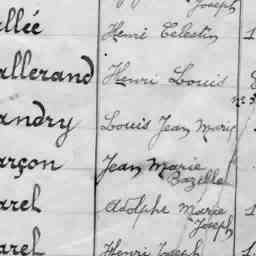 Joseph
allée Henri Celestin 1
allerand Henri Louis
andry Louis Jean Marie
arçon Jean Marie
Bazille
arel Adolphe Marie 1
Joseph
arel Henri Joseph 1